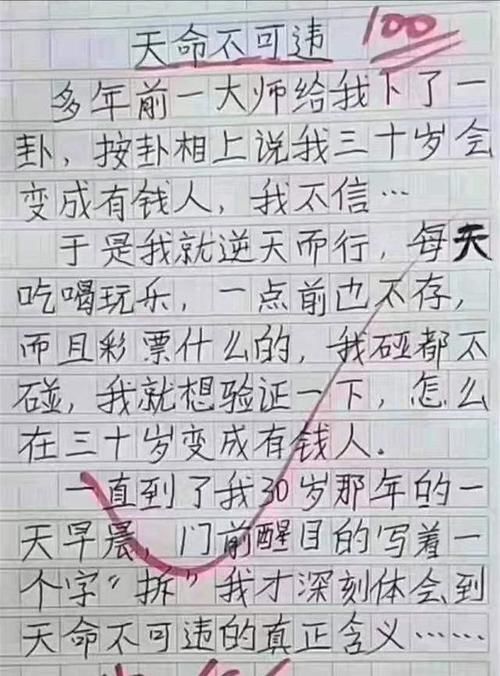 天命不可违 100
多年前一大师给我下了一
卦，按卦相上说我三十岁会
变成有钱人，我不信…
于是我就逆天而行，每天
吃喝玩乐，一点前也不存，
而且彩票什么的，我碰都不
碰，我就想验证一下，怎么
在三十岁变成有钱人。
一直到了我30岁那年的一
天早晨，门前醒目的写着一
个字“拆”我才深刻体会到
天命不可违的真正含义……